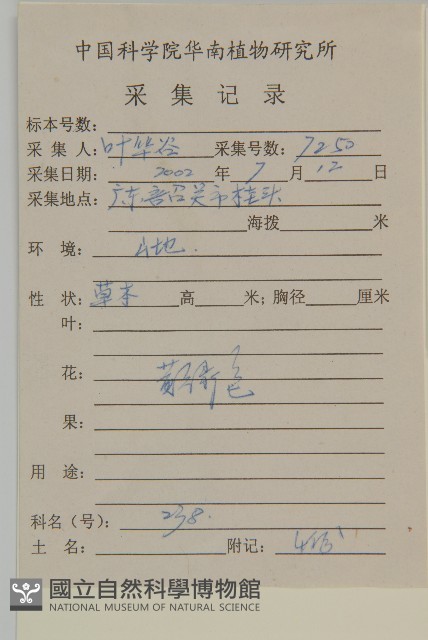 中国科学院华南植物研究所
采集记录
标本号数：
采集人：叶华谷 采集号数：7250
采集日期：2002年7月12日
采集地点：广东韶关市桂头
海拨 米
环境：山地.
性状：草本 高 米；胸径 厘米
叶：
花：黄绿色
果：
用途：
科名（号）：238.
土名： 附记：
國立自然科學博物館
NATIONAL MUSEUM OF NATURAL SCIENCE